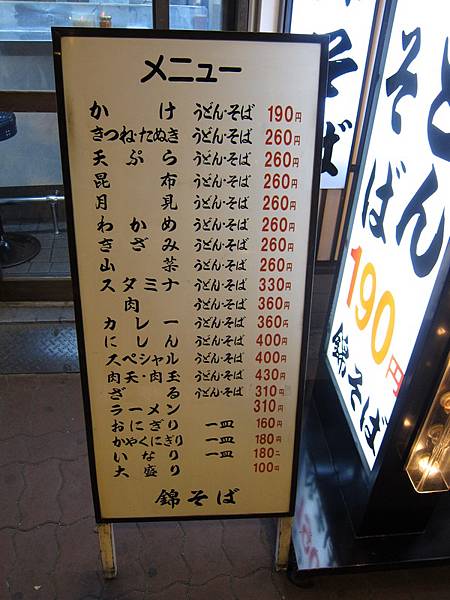 メニュー
かけ うどん・そば 190円
きつね・たぬき うどん・そば 260円
天ぷら うどん・そば 260円
昆布 うどん・そば 260円
月見 うどん・そば 260円
わかめ うどん・そば 260円
きざみ うどん・そば 260円
山菜 うどん・そば 260円
スタミナ うどん・そば 330円
肉 うどん・そば 360円
カレー うどん・そば 360円
にしん うどん・そば 400円
スペシャル うどん・そば 400円
肉天・肉玉 うどん・そば 430円
ざる うどん・そば 310円
ラーメン 310円
おにぎり 一皿 160円
かやくにぎり 一皿 180円
いなり 一皿 180
大盛り 100円
錦そば
そば
うどん
そば
190円
錦そば